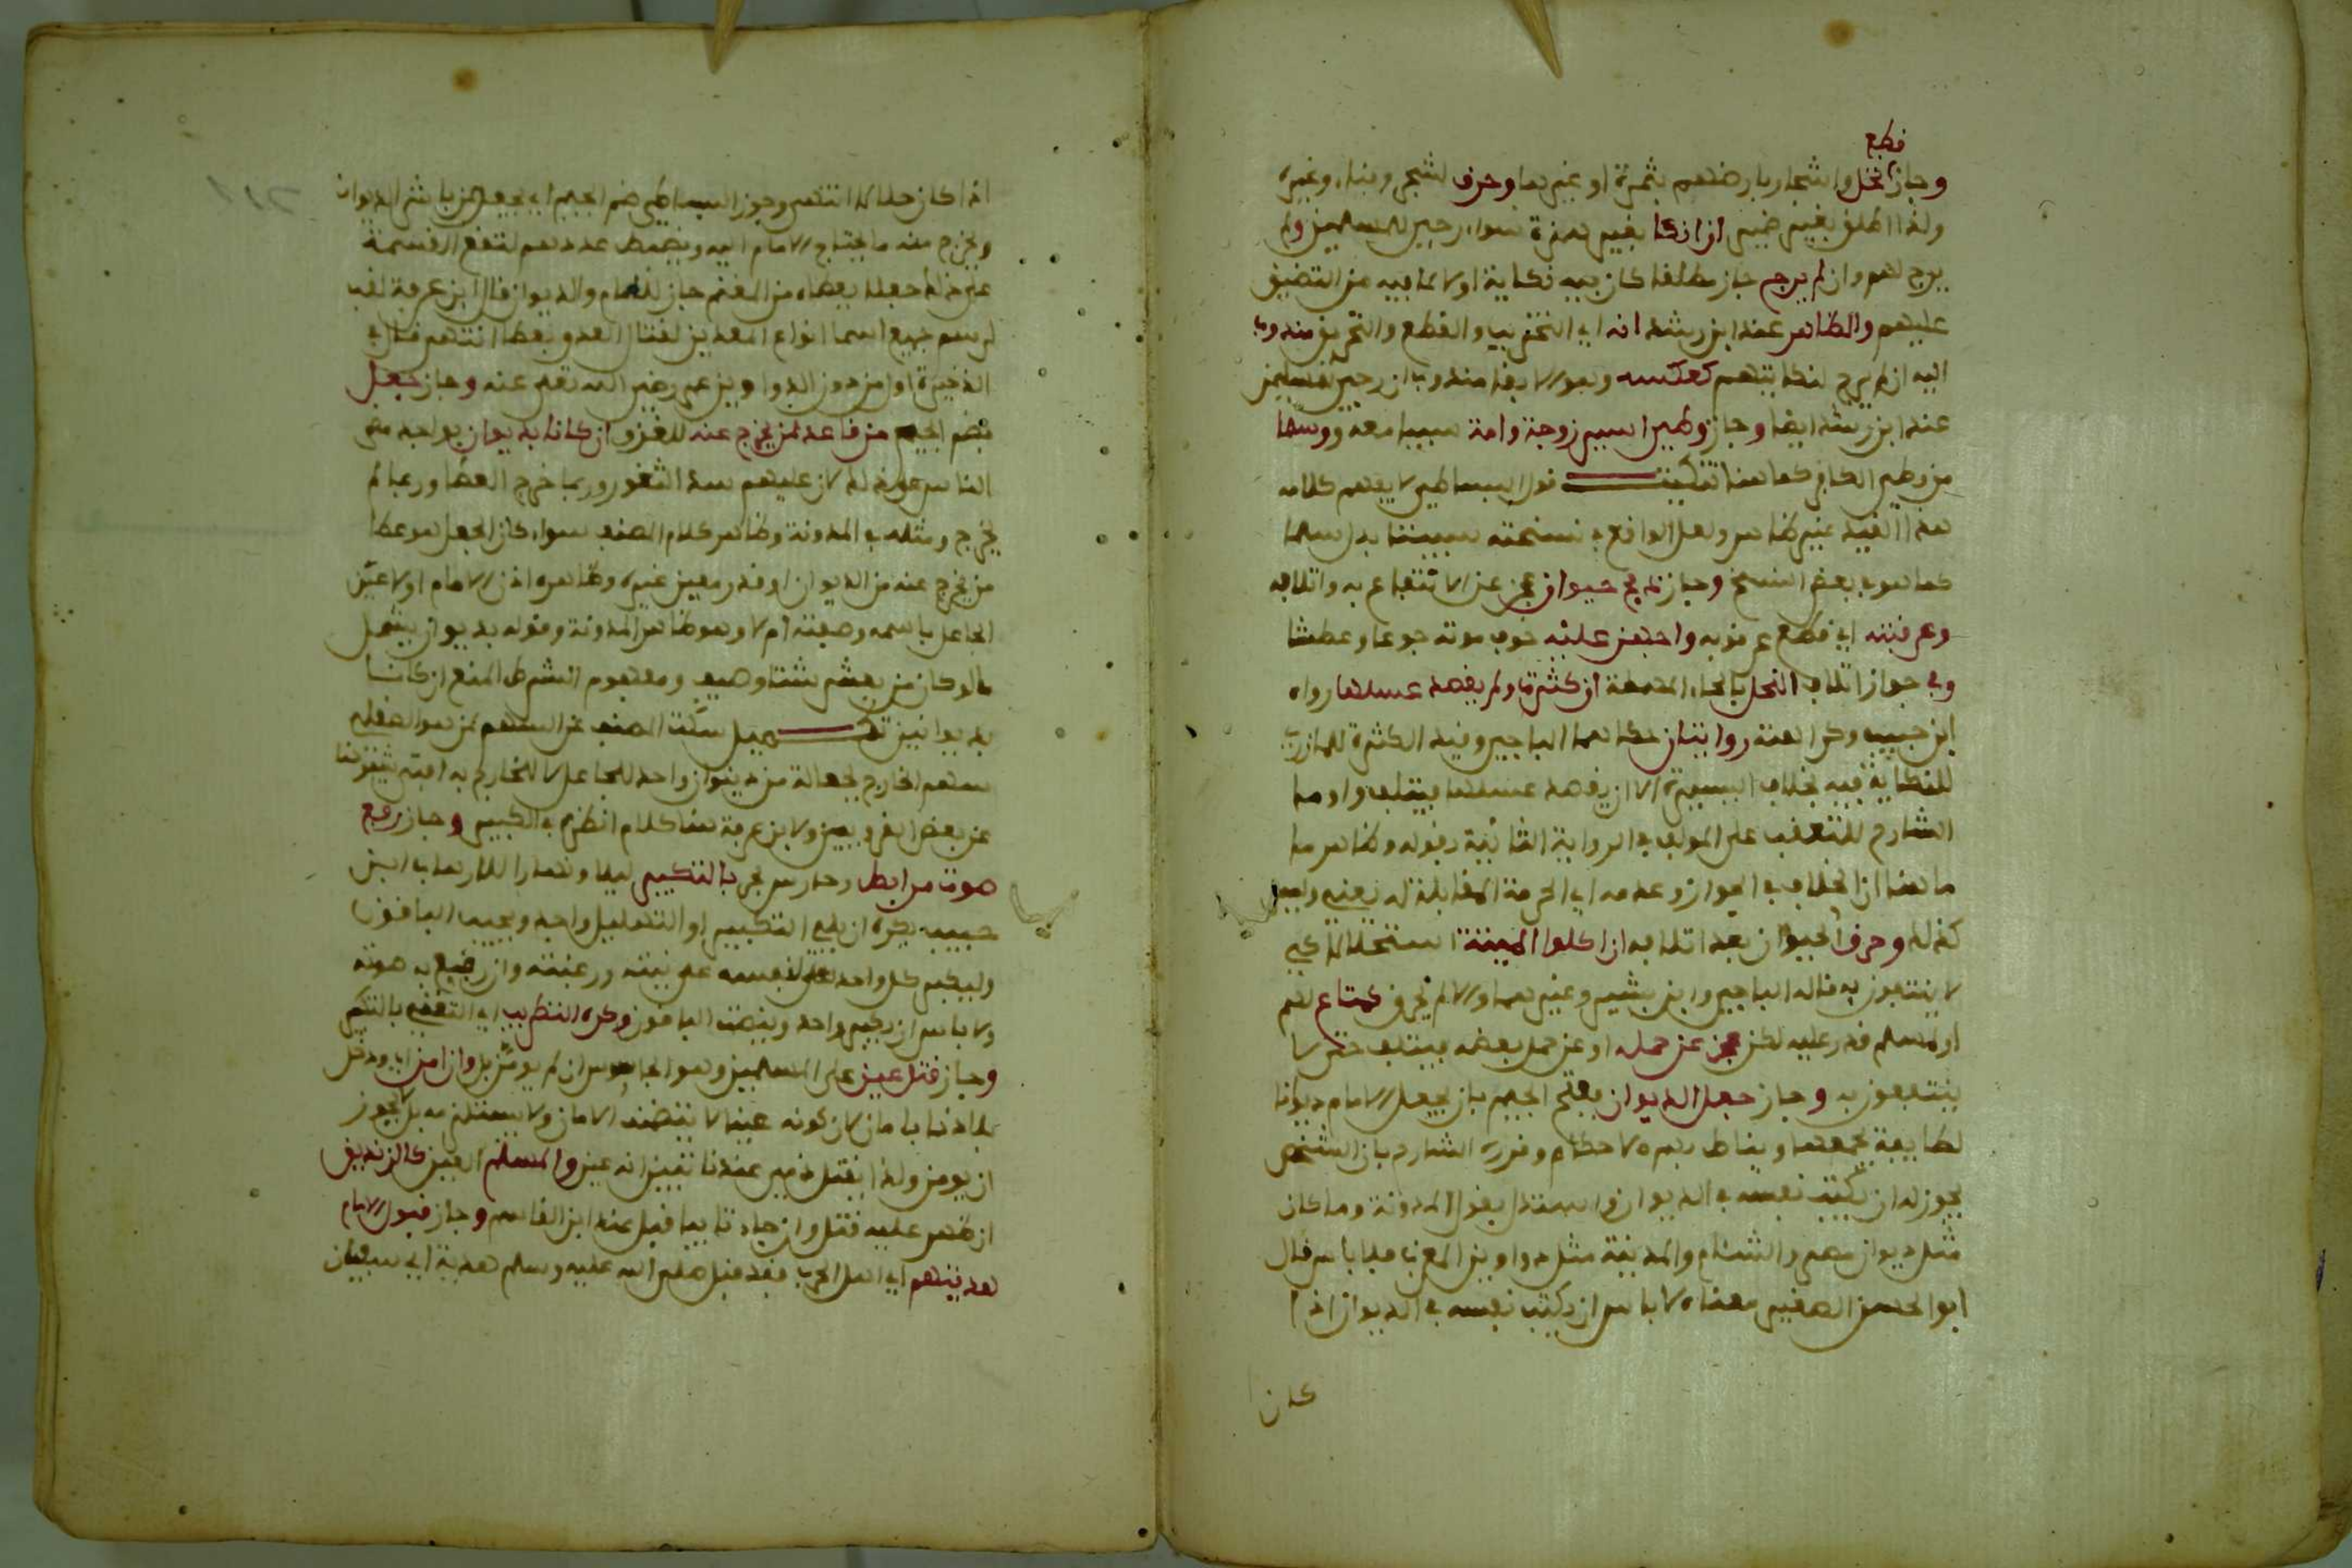 قطع
وجاز نخل واشجار بارضهم بثمرة او غيرها وحرق لشجر وبناء وغيره
ولذا اطلق بغير ضمير ان انكا بغير همزة سواء رجى للمسلمين ولم
يرج لهم وان لم يرج جاز مطلقا كان فيه نكاية او لا لما فيه من التضييق
عليهم والظاهر عند ابن رشد انه اي التخريب والقطع والتحريق مندوب
اليه ان لم يرج لنكايتهم كعكسه وهو الابقا مندوب ان رجى للمسلمين
عند ابن رشد ايضا وجاز وطء اسير زوجة وامة سبيتا معه وسلمتا
من وطء الكافر كما هنا تنكيت قول البساطي لا يفهم كلامه
هذا القيد غير ظاهر ولعل الواقع في نسخته سبيتا بدل سلمتا
كما هو في بعض النسخ وجاز ذبح حيوان عجز عن الانتفاع به واتلافه
وعرقبته اي قطع عرقوبه واجهز عليه خوف موته جوعا وعطشا
وفي جواز اتلاف النحل بالحاء المهملة ان كثرت ولم يقصد عسلها رواه
ابن حبيب وكراهته روايتان حكاهما الباجي وقيد الكثرة للمازري
للنكاية فيه بخلاف اليسيرة الا ان يقصد عسلها فيتلف واوما
الشارح للتعقب على المولف في الرواية الثانية بقوله وظاهر ما
ما هنا ان الخلاف في الجواز وعدمه اي الحرمة المقابلة له يعني وليس
كذلك وحرق الحيوان بعد اتلافه ان اكلوا الميتة استحلالا كي
لا ينتفعون به قاله الباجي وابن بشير وغيرهما والا لم يحرق كمتاع لهم
او لمسلم قدر عليه لكن عجز عن حمله او عن حمل بعضه فيتلف حتى لا
ينتفعون به وجاز جعل الديوان بفتح الجيم بان يجعل الامام ديوانا
لطايفة يجمعها ويناط بهم الاحكام وقرره الشارح بان الشخص
يجوز له ان يكتب نفسه في الديوان واستدل بقول المدونة وما كان
مثل ديوان مصر والشام والمدينة مثل دواوين العرب فلا باس قال
ابو الحسن الصغير معناه لا باس ان يكتب نفسه في الديوان اذا
كان
اذا كان حلالا انتهى وجوز البساطي ضم الجيم اي يجعل لمن باشر الديوان
ويخرج منه ما يحتاج الامام اليه ويضبط عددهم لتقع القسمة
على ذلك جعلا يعطاه من المغنم جاز للامام والديوان قال ابن عرفة لقب
لرسم جميع اسما انواع المعدين لقتال العدو بعطا انتهى قال في
الذخيرة اول من دون الدواوين عمر رضي الله تعالى عنه وجاز جعل
بضم الجيم من قاعد لمن يخرج عنه للغزو ان كانا بديوان بواحد مضى
الناس على ذلك لان عليهم سد الثغور وربما خرج العطا وربما لم
يخرج ومثله في المدونة وظاهر كلام المصنف سواء كان الجعل هو عطا
من يخرج عنه من الديوان او قدر معين غيره وظاهره اذن الامام او لا عين
الجاعل باسمه وصفته ام لا وهو ظاهر المدونة وقوله بديوان يشمل
ما لو كان من بمشتى شتا وصيف ومفهوم الشرط المنع ان كانا
بديوانين تكميل سكت المصنف عن السهم لمن هو الصقلي
سهم الخارج لجعالة من ديوان واحد للجاعل لا للخارج به افتى شيخنا
عن بعض القرويين ولابن عرفة هنا كلام انظره في الكبير وجاز رفع
صوت مرابط وحارس بحر بالتكبير ليلا ونهارا للارهاب ابن
حبيب يكره ان يلي التكبير او التهليل واحد ويجيب الباقون
وليكبر كل واحد على نفسه على نيته ورغبته وان رفع به صوته
ولا باس ان يكبر واحد وينصت الباقون وكره التطريب اي التغني بالتكبير
وجاز قتل عين على المسلمين وهو الجاسوس ان لم يومن بل وان امن اي ودخل
بلادنا بامان لان كونه عينا لا يتضمنه الامان ولا يستلزمه بل لا يجوز
ان يومن ولذا يقتل ذمي عندنا تبين انه عين والمسلم العين كالزنديق
ان ظهر عليه قتل وان جاء تايبا قبل عند ابن القاسم وجاز قبول الامام
هديتهم اي اهل الحرب فقد قبل صلى الله عليه وسلم هدية ابي سفيان